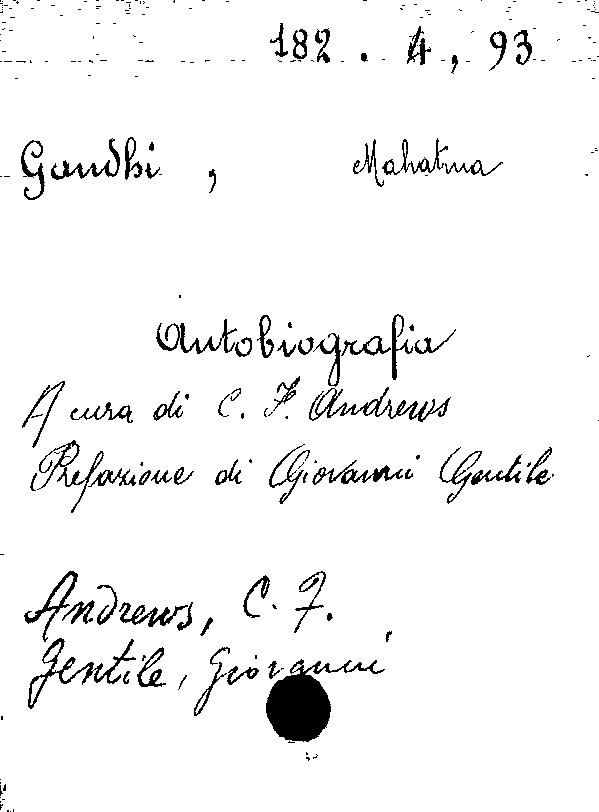 182 . 4, 93
Gandhi, Mahatma
Autobiografia
A cura di C. F. Andrews
Prefazione di Giovanni Gentile
Andrews, C. F.
Gentile, Giovanni